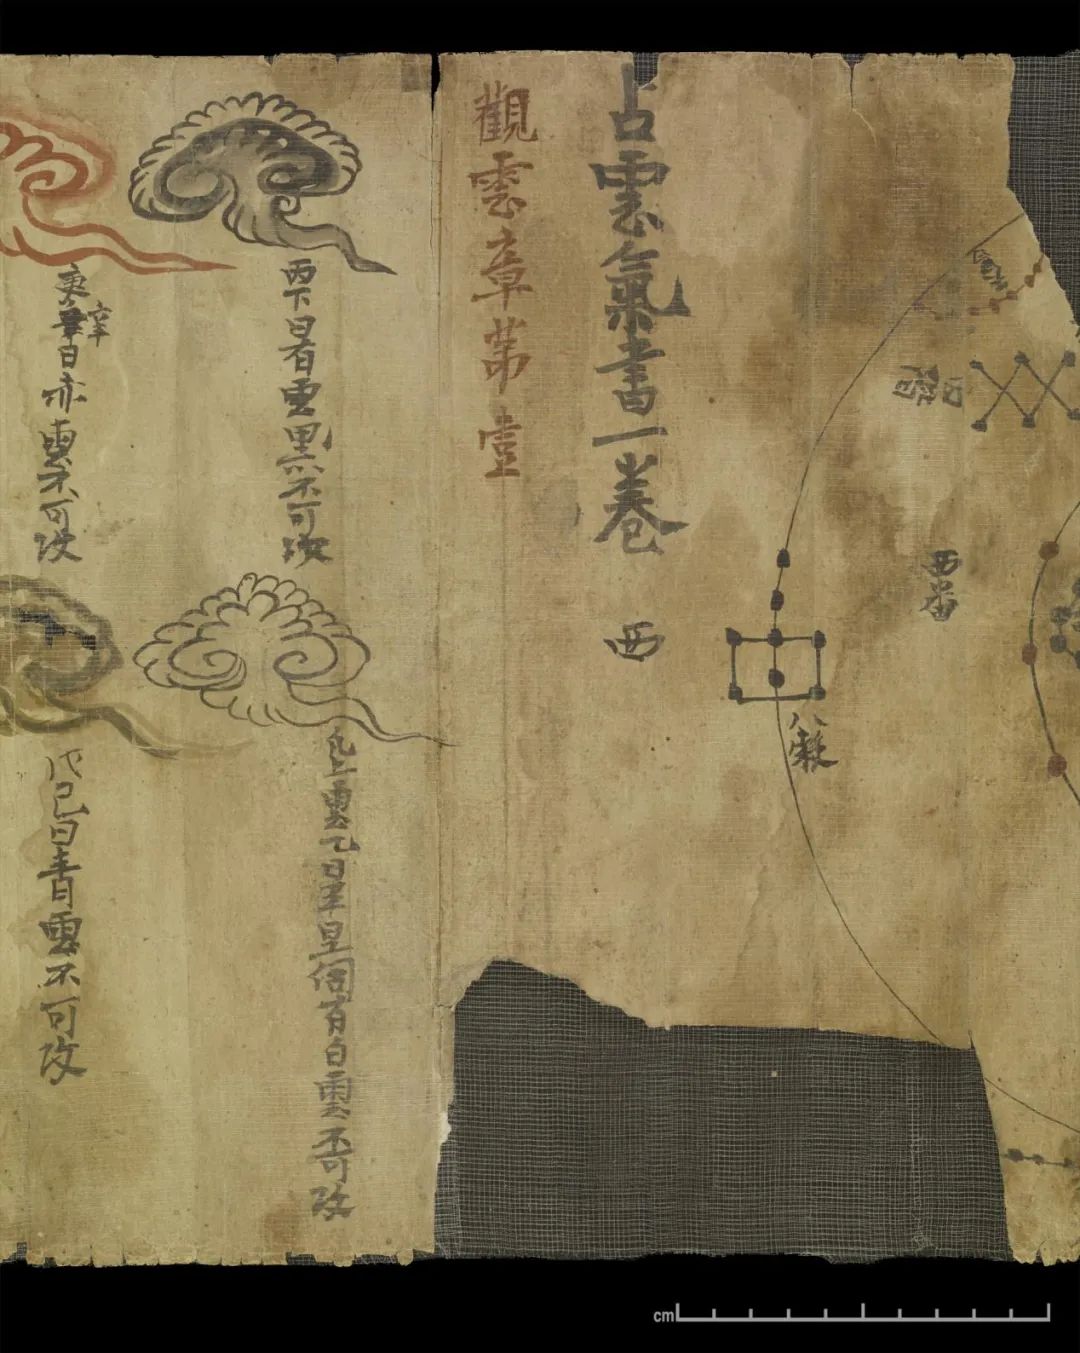 西番
八穀
占雲氣書一卷
西
觀雲章第壹
丙丁日有雲黑不可攻
雲乙日平旦伺有白雲不可攻
庚辛日赤雲不可攻
戊己日青雲不可攻